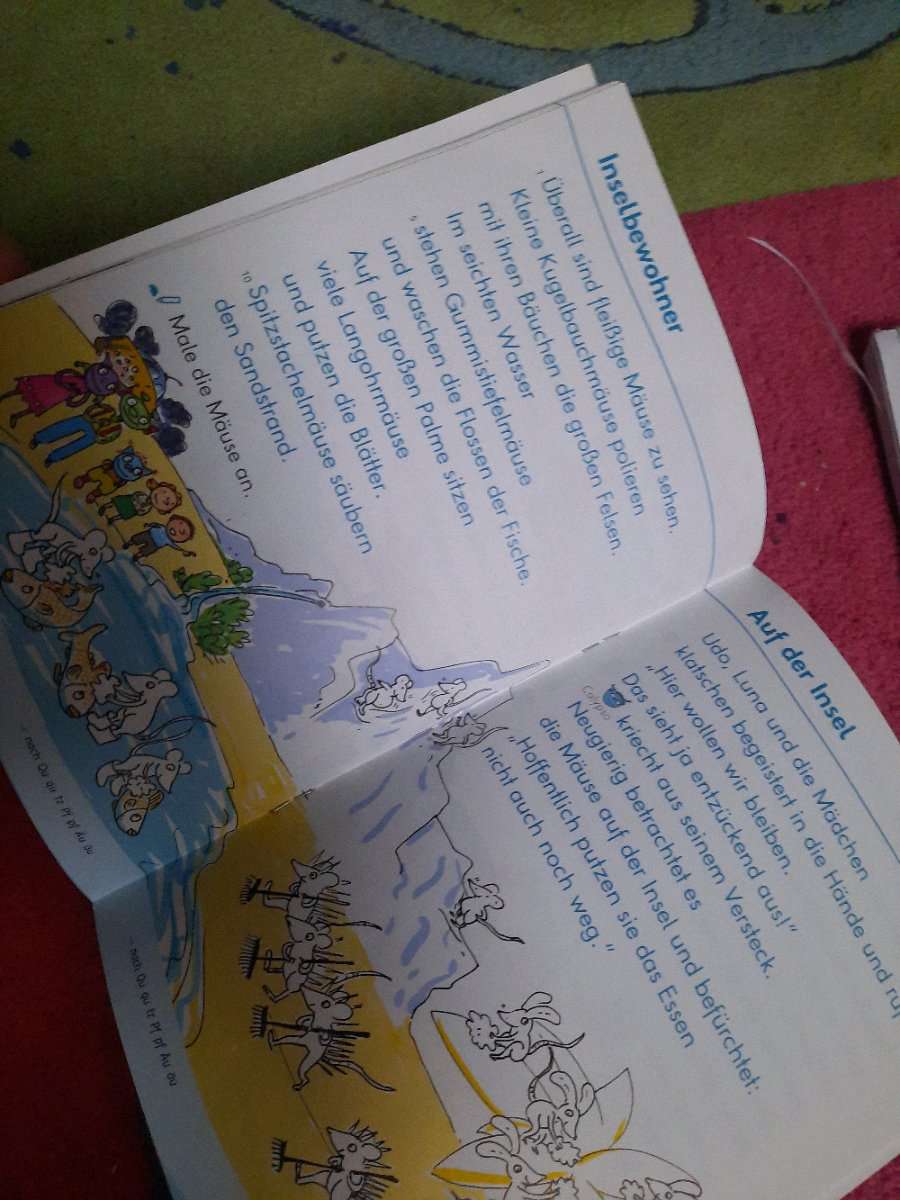 Inselbewohner
1 Überall sind fleißige Mäuse zu sehen.
Kleine Kugelbauchmäuse polieren
mit ihren Bäuchen die großen Felsen.
Im seichten Wasser
5 stehen Gummistiefelmäuse
und waschen die Flossen der Fische.
Auf der großen Palme sitzen
viele Langohrmäuse
und putzen die Blätter.
10 Spitzstachelmäuse säubern
den Sandstrand.
Male die Mäuse an.
– nach Qu qu tz Pf pf Äu äu
Auf der Insel
Udo, Luna und die Mädchen
klatschen begeistert in die Hände und
„Hier wollen wir bleiben.
Das sieht ja entzückend aus!“
kriecht aus seinem Versteck.
Neugierig betrachtet es
die Mäuse auf der Insel und befürchtet:
„Hoffentlich putzen sie das Essen
nicht auch noch weg.“
– nach Qu qu tz Pf pf Äu äu